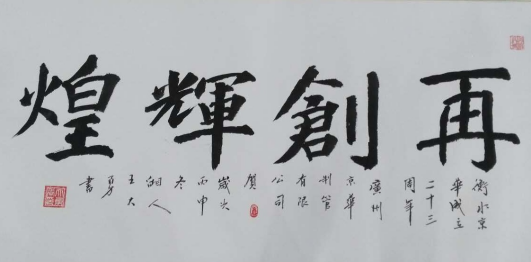 再創輝煌
衡水京
華成立
二十三
周年
廣州
京華
制管
有限
公司
賀
歲次
丙申
冬
人
王大
勇
書